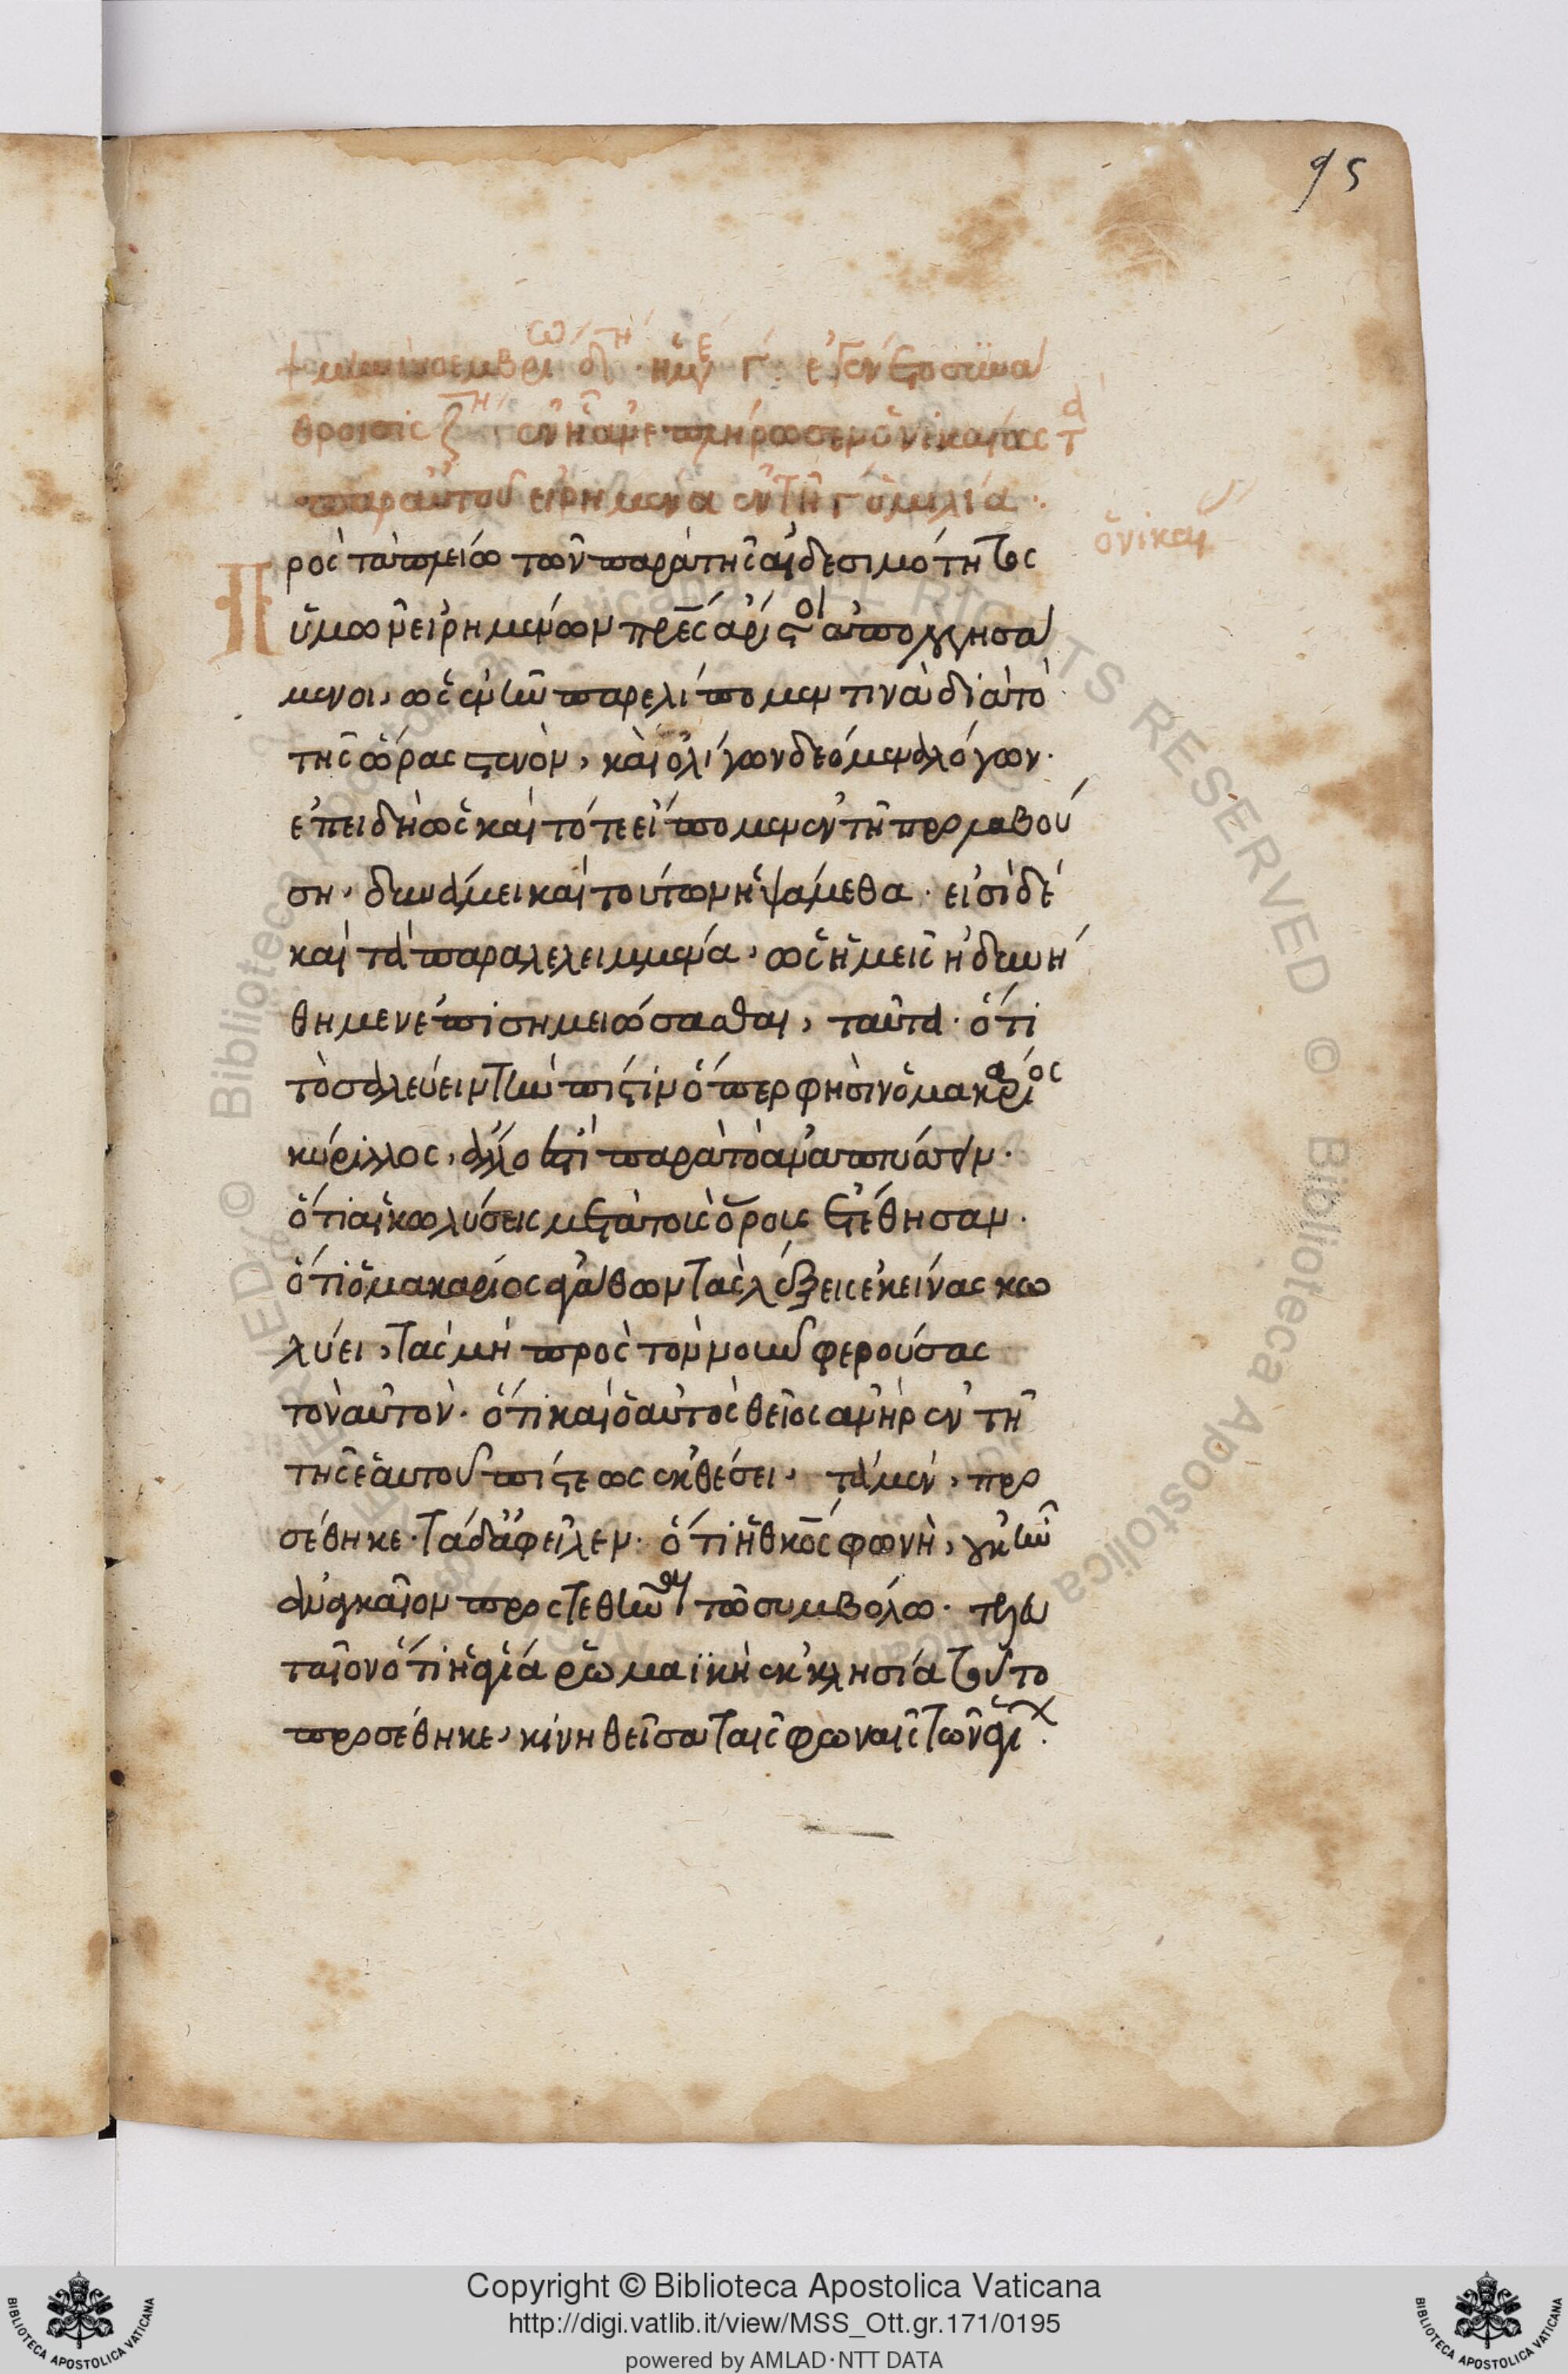 95
ὁ νικαί
ρος τὰ πλείω τῶν παρὰ τῆς αἰδεσιμότητος
ὑμῶν εἰρημένων πρες ἄριστοι ἀπολογησά
μενοι, ὡς ἐμοὶ παρελίπομεν τινὰ διὰ τὸ
τῆς ὥρας στενὸν, καὶ ὀλίγων δεόμενα λόγων.
ἐπειδὴ ὡς καὶ τότε εἴπομεν ἐν τῇ προλαβού
ση, δυνάμει καὶ τούτων ἡψάμεθα. εἰσὶ δὲ
καὶ τὰ παραλελειμμένα, ὡς ἡμεῖς ἠδυνή
θημεν ἐπισημειώσασθαι, ταῦτα. ὅτι
τὸ σαλεύειν τὴν πίστιν ὅπερ φησὶν ὁ μακάριος
κύριλλος, ἄλλο ἐστὶ παρὰ τὸ ἀναπτύσσειν.
ὅτι αἱ κωλύσεις μετὰ τοὺς ὅρους ἐτέθησαν.
ὅτι ὁ μακάριος ἀγάθων τὰς λέξεις ἐκείνας κω
λύει, τὰς μὴ πρὸς τὸν νοῦν φερούσας
τὸν αὐτὸν. ὅτι καὶ ὁ αὐτὸς θεῖος ἀνὴρ ἐν τῇ
τῆς ἑαυτοῦ πίστεως ἐκθέσει, τὰ μὲν, προ
σέθηκε. τὰ δ' ἀφεῖλεν. ὅτι ἡ θκὸς φωνὴ, γκην
ἀναγκαῖον προστεθῆναι τῷ συμβόλῳ. τελευ
ταῖον ὅτι ἡ ἁγία ῥωμαϊκὴ ἐκκλησία τοῦτο
προσέθηκε, κινηθεῖσα ταῖς φωναῖς τῶν ἁγί.
Copyright © Biblioteca Apostolica Vaticana
http://digi.vatlib.it/view/MSS_Ott.gr.171/0195
powered by AMLAD·NTT DATA